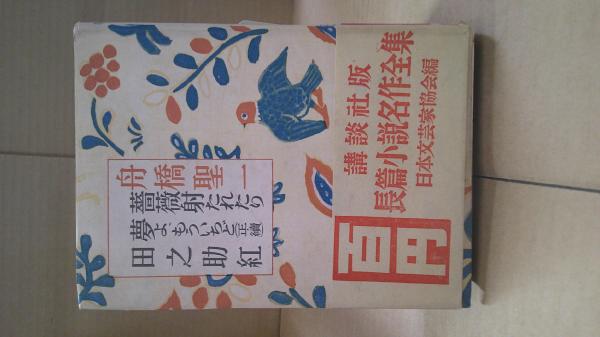 舟橋聖一
薔薇射たれたり
夢よ、もういちど 正續
田之助紅
講談社版
長篇小説名作全集
日本文芸家協会編
百円